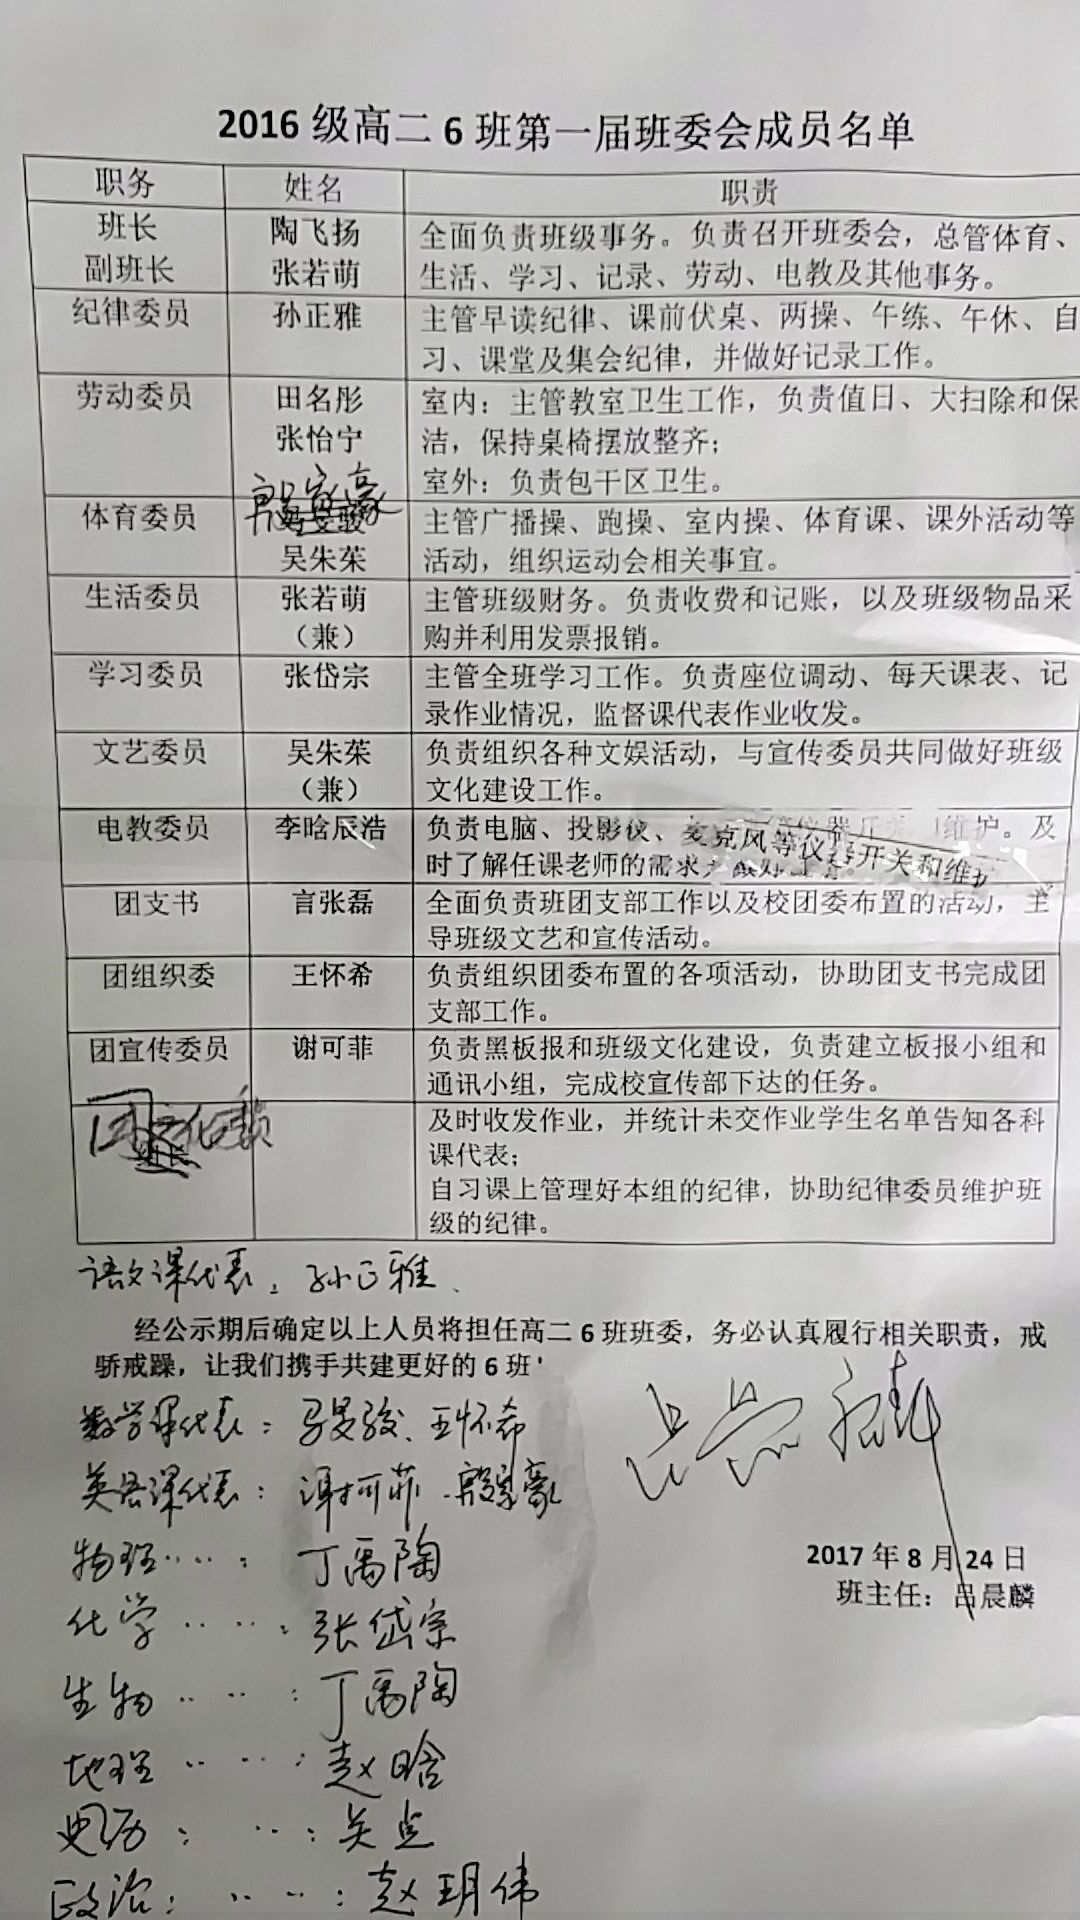 2016级高二6班第一届班委会成员名单
职务 姓名 职责
班长 陶飞扬 全面负责班级事务。负责召开班委会，总管体育、
副班长 张若萌 生活、学习、记录、劳动、电教及其他事务。
纪律委员 孙正雅 主管早读纪律、课前伏桌、两操、午练、午休、自
习、课堂及集会纪律，并做好记录工作。
劳动委员 田名彤 室内：主管教室卫生工作，负责值日、大扫除和保
张怡宁 洁，保持桌椅摆放整齐；
室外：负责包干区卫生。
体育委员 家豪 主管广播操、跑操、室内操、体育课、课外活动等
吴朱茱 活动，组织运动会相关事宜。
生活委员 张若萌 主管班级财务。负责收费和记账，以及班级物品采
（兼） 购并利用发票报销。
学习委员 张岱宗 主管全班学习工作。负责座位调动、每天课表、记
录作业情况，监督课代表作业收发。
文艺委员 吴朱茱 负责组织各种文娱活动，与宣传委员共同做好班级
（兼） 文化建设工作。
电教委员 李晗辰浩 负责电脑、投影仪、麦克风等仪器开关和维护。及
时了解任课老师的需求
团支书 言张磊 全面负责班团支部工作以及校团委布置的活动，主
导班级文艺和宣传活动。
团组织委 王怀希 负责组织团委布置的各项活动，协助团支书完成团
支部工作。
团宣传委员 谢可菲 负责黑板报和班级文化建设，负责建立板报小组和
通讯小组，完成校宣传部下达的任务。
及时收发作业，并统计未交作业学生名单告知各科
课代表；
自习课上管理好本组的纪律，协助纪律委员维护班
级的纪律。
语文课代表：孙正雅、
经公示期后确定以上人员将担任高二6班班委，务必认真履行相关职责，戒
骄戒躁，让我们携手共建更好的6班
数学课代表：马旻骏、王怀希
英语课代表：谢可菲、殷家豪
物理……：丁禹陶
2017年8月24日
班主任：吕晨麟
化学……：张岱宗
生物……：丁禹陶
地理……：赵晗
历：……：吴
政治：……：赵玥伟